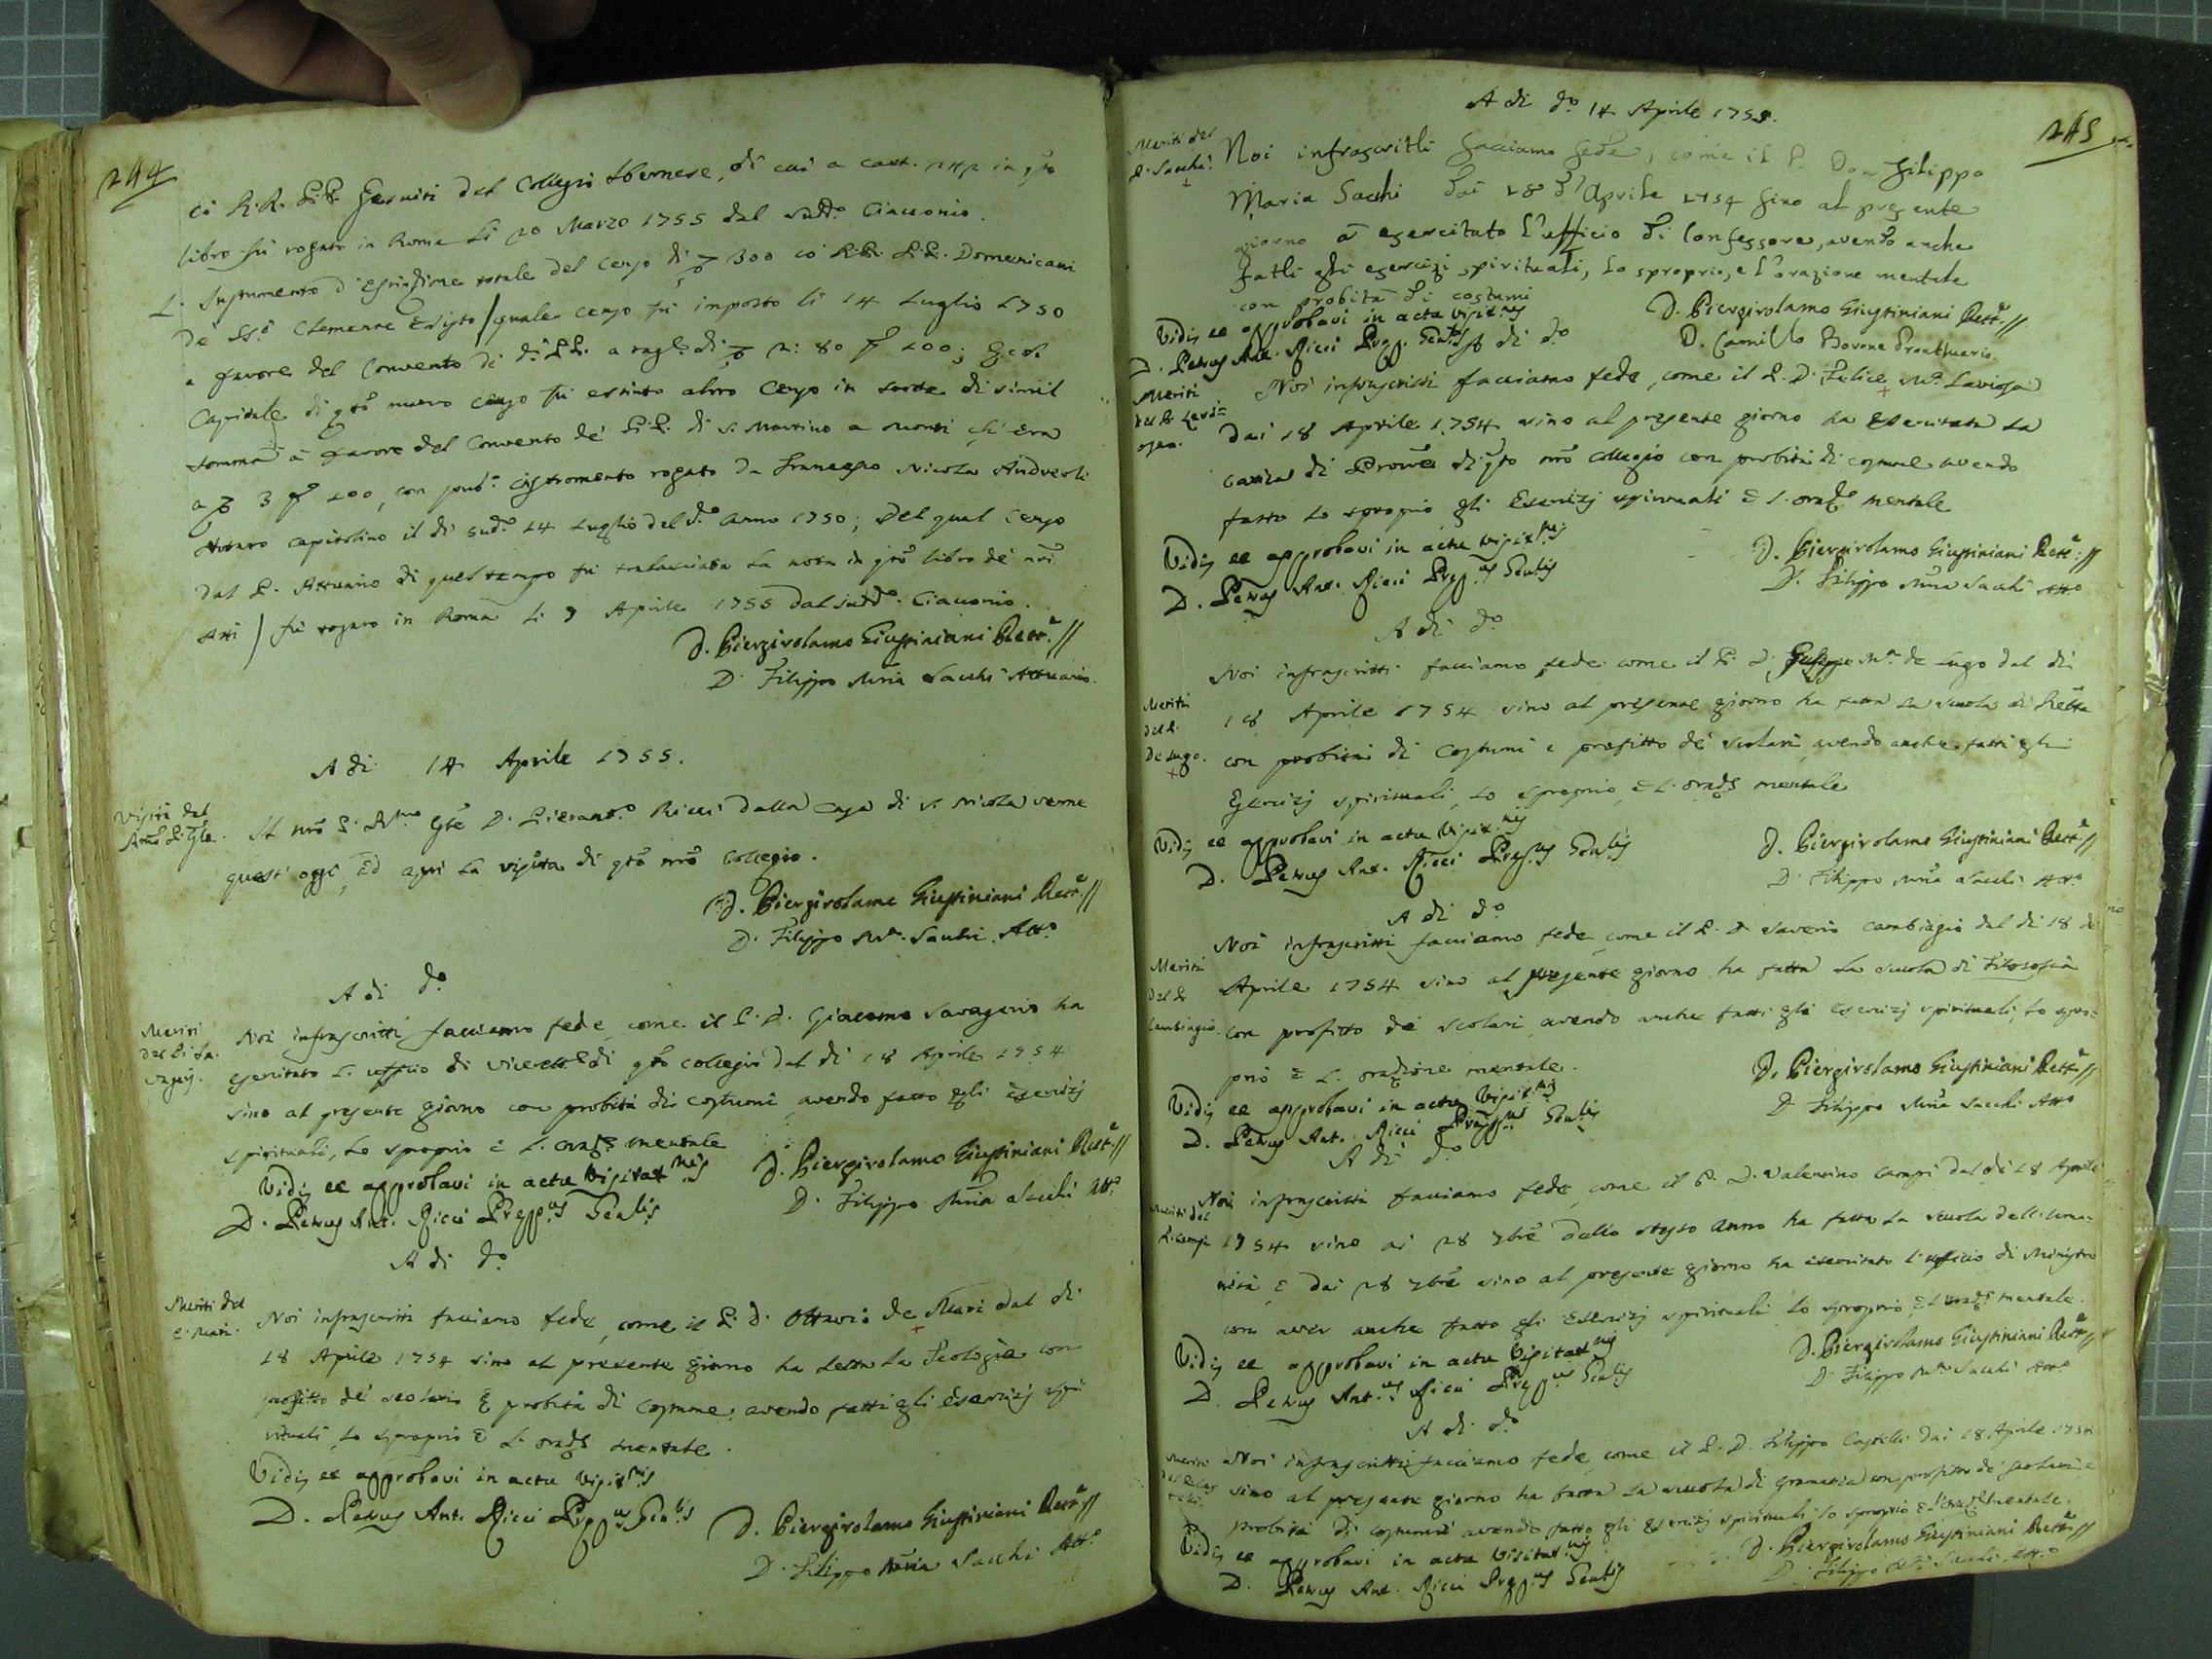 244
co RR. PP. Gesuiti del Collegio Ibernese, di cui a cart. 242 in qto
libro fù rogato in Roma li 20 Marzo 1755 dal sudd.o Ciacconio.
L' Instrumento d'estinzione totale del censo di 300 co RR. PP. Domenicani
de SS.i Clemente e Sisto / quale censo fù imposto li 14 Luglio 1750
a favore del Convento di d.i PP. a rag.e di 2: 80 p 100; e col
Capitale di qto nuovo censo fù estinto altro Censo in sorte di simil
somma à favore del Convento de' PP. di S. Martino a Monti
a 3 p 100, con istromento rogato da Francesco Nicola
Notaro Capitolino il di sud.o 14 Luglio del d.o anno 1750; del qual Censo
dal P. Attuario di quel tempo fù tralasciata la nota in qto libro de nri
atti / fù rogato in Roma li 9 Aprile 1755 dal sudd.o Ciacconio.
D. Piergirolamo Giustiniani Rett.e //
D. Filippo Mria Sacchi Attuario.
A di 14 Aprile 1755.
Visita del
Rmo P. Gle.
Il nro P. Rmo Gle D. Pierant.o Ricci dalla Casa di S. Nicola venne
quest' oggi, ed aprì la visita di qto nro Collegio.
D. Piergirolamo Giustiniani Rett.e //
D. Filippo M.a Sacchi Att.o
A di d.o
Meriti
del P.
Noi infrascritti facciamo fede, come il P. D. Giacomo Savageri ha
esercitato l' ufficio di Vicerett.e di qto Collegio dal di 18 Aprile 1754
sino al presente giorno con probità di costumi, avendo fatto gli Esercizj
spirituali, lo sproprio e l' oraz.e mentale
Vidi, et approbavi in actu Visitat.nis
D. Petrus Ant. Ricci Prep.us Gen.lis
D. Piergirolamo Giustiniani Rett.e //
D. Filippo Mria Sacchi Att.o
A di d.o
Meriti del
P. Mari.
Noi infrascritti facciamo fede, come il P. D. Ottavio de Mari dal di
18 Aprile 1754 sino al presente giorno ha letta la Teologia con
profitto de' scolari e probità di costume, avendo fatti gli esercizj spi
rituali lo sproprio e l' oraz.e mentale.
Vidi, et approbavi in actu Visit.nis
D. Petrus Ant. Ricci Prep.us Gen.lis
D. Piergirolamo Giustiniani Rett.e //
D. Filippo Mria Sacchi Att.o
245
A di d.o 14 Aprile 1755.
Meriti del
P. Sacchi.
Noi infrascritti facciamo fede, come il P. Don Filippo
Maria Sacchi dai 18 d'Aprile 1754 fino al presente
giorno à esercitato l'ufficio di Confessore, avendo anche
fatti gli esercizi spirituali, lo sproprio, e l'orazione mentale
con probità di costumi
Vidi, et approbavi in actu Visit.nis
D. Petrus Ant. Ricci Prep. Gen.lis
D. Piergirolamo Giustiniani Rett.e //
D. Camillo Bovone Proattuario.
A di d.o
Meriti
del P. Levi=
osa.
Noi infrascritti facciamo fede, come il P. D. Felice M.a Laviosa
dai 18 Aprile 1754 sino al presente giorno ha esercitata la
carica di Proc.re di qto nro Collegio con probità di costume avendo
fatto lo sproprio gli Esercizj spirituali e l' oraz.e mentale
Vidi, et approbavi in actu Visit.nis
D. Petrus Ant. Ricci Prep.us Gen.lis
D. Piergirolamo Giustiniani Rett.e //
D. Filippo Mria Sacchi Att.o
A di d.o
Meriti
del P.
De Lugo.
Noi infrascritti facciamo fede come il P. D. Giuseppe M.a de Lugo dal di
18 Aprile 1754 sino al presente giorno ha fatta la scuola di Rett.a
con probità di costumi e profitto de' scolari avendo anche fatti gli
Esercizj spirituali, lo sproprio, e l. oraz.e mentale
Vidi, et approbavi in actu Visit.nis
D. Petrus Ant. Ricci Prep.us Gen.lis
D. Piergirolamo Giustiniani Rett.e //
D. Filippo Mria Sacchi Att.o
A di d.o
Meriti
del P.
Cambiagio.
Noi infrascritti facciamo fede, come il P. D. Saverio Cambiagio dal di 18 di
Aprile 1754 sino al presente giorno ha fatta la scuola di Filosofia
con profitto de' scolari avendo anche fatti gli esercizj spirituali, lo spro=
prio e l. orazione mentale.
Vidi, et approbavi in actu Visit.nis
D. Petrus Ant. Ricci Prep.us Gen.lis
D. Piergirolamo Giustiniani Rett.e //
D. Filippo Mria Sacchi Att.o
A di d.o
Meriti del
P. Campi
Noi infrascritti facciamo fede, come il P. D. Valentino Campi dal di 18 Aprile
1754 sino ai 28 7bre dello stesso anno ha fatta la scuola dell' Uma=
nità e dai 28 7bre sino al presente giorno ha esercitato l'ufficio di Ministro
con aver anche fatto gli Esercizj spirituali lo sproprio, e l'oraz.e mentale.
Vidi, et approbavi in actu Visitat.nis
D. Petrus Ant.us Ricci Prep.us Gen.lis
D. Piergirolamo Giustiniani Rett.e //
D. Filippo M.a Sacchi Att.o
A di d.o
Meriti
del P. Cas
telli.
Noi infrascritti facciamo fede, come il P. D. Filippo Castelli dai 18 Aprile 1754
sino al presente giorno ha fatta la scuola di Gramatica con profitto de' scolari e
probità di costumi avendo fatto gli esercizj spirituali lo sproprio e l'oraz.e mentale.
Vidi, et approbavi in actu Visitat.nis
D. Petrus Ant. Ricci Prep.us Gen.lis
D. Piergirolamo Giustiniani Rett.e //
D. Filippo M.a Sacchi Att.o